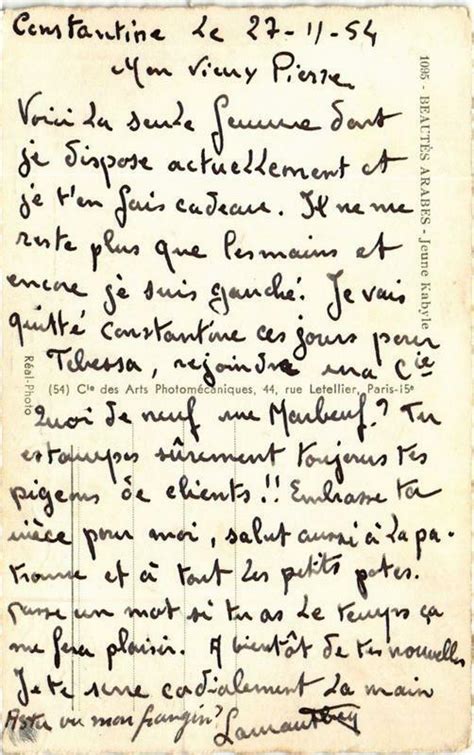 Constantine le 27-11-54
Mon vieux Pierre
Voici la seule femme dont
je dispose actuellement et
je t'en fais cadeau. Il ne me
reste plus que les mains et
encore je suis gauché. Je vais
quitté Constantine ces jours pour
Tebessa, rejoindre ma Cie
(54) Cie des Arts Photomécaniques, 44, rue Letellier, Paris-15e
Quoi de neuf rue Marbeuf? Tu
estampes sûrement toujours tes
pigeons de clients!! Embrasse ta
nièce pour moi, salut aussi à la pa-
tronne et à tout les petits potes.
passe un mot si tu as le temps ça
me fera plaisir. A bientôt de tes nouvelles
Je te serre cordialement la main
As tu vu mon frangin?
1095 - BEAUTÉS ARABES - Jeune Kabyle
Réal-Photo